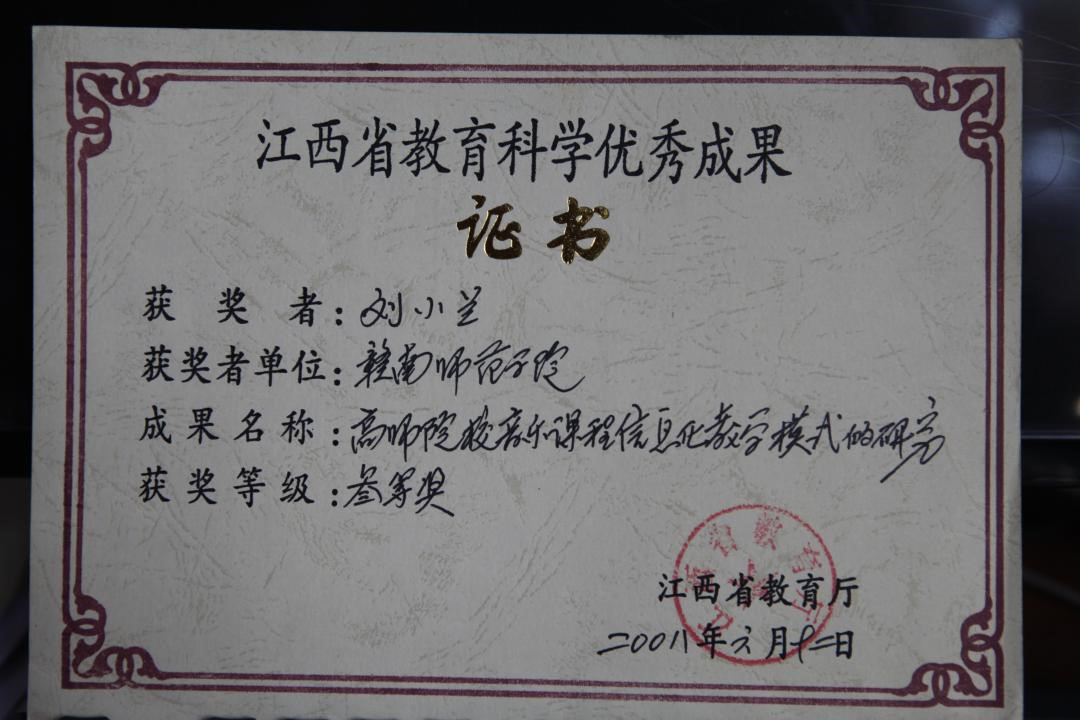 江西省教育科学优秀成果
证书
获奖者：刘小兰
获奖者单位：赣南师范学院
成果名称：高师院校音乐课程信息化教学模式的研究
获奖等级：叁等奖
江西省教育厅
江西省教育厅
二00八年六月十二日